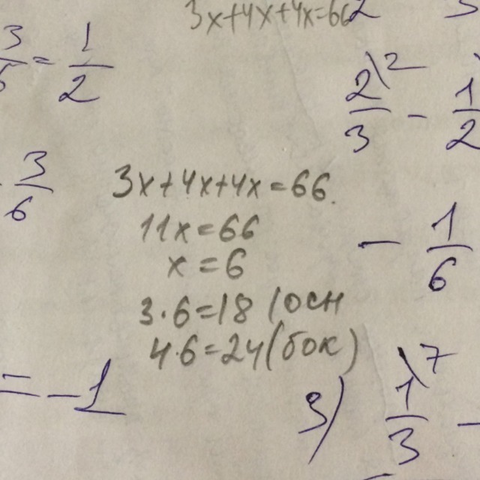 3x+4x+4x=66
3/6=1/2
2/3\2 - 1/2
3/6
3x+4x+4x=66.
11x=66
x=6
- 1/6
3·6=18 (осн
4·6=24(бок)
=-1
3) 1/3\7 -